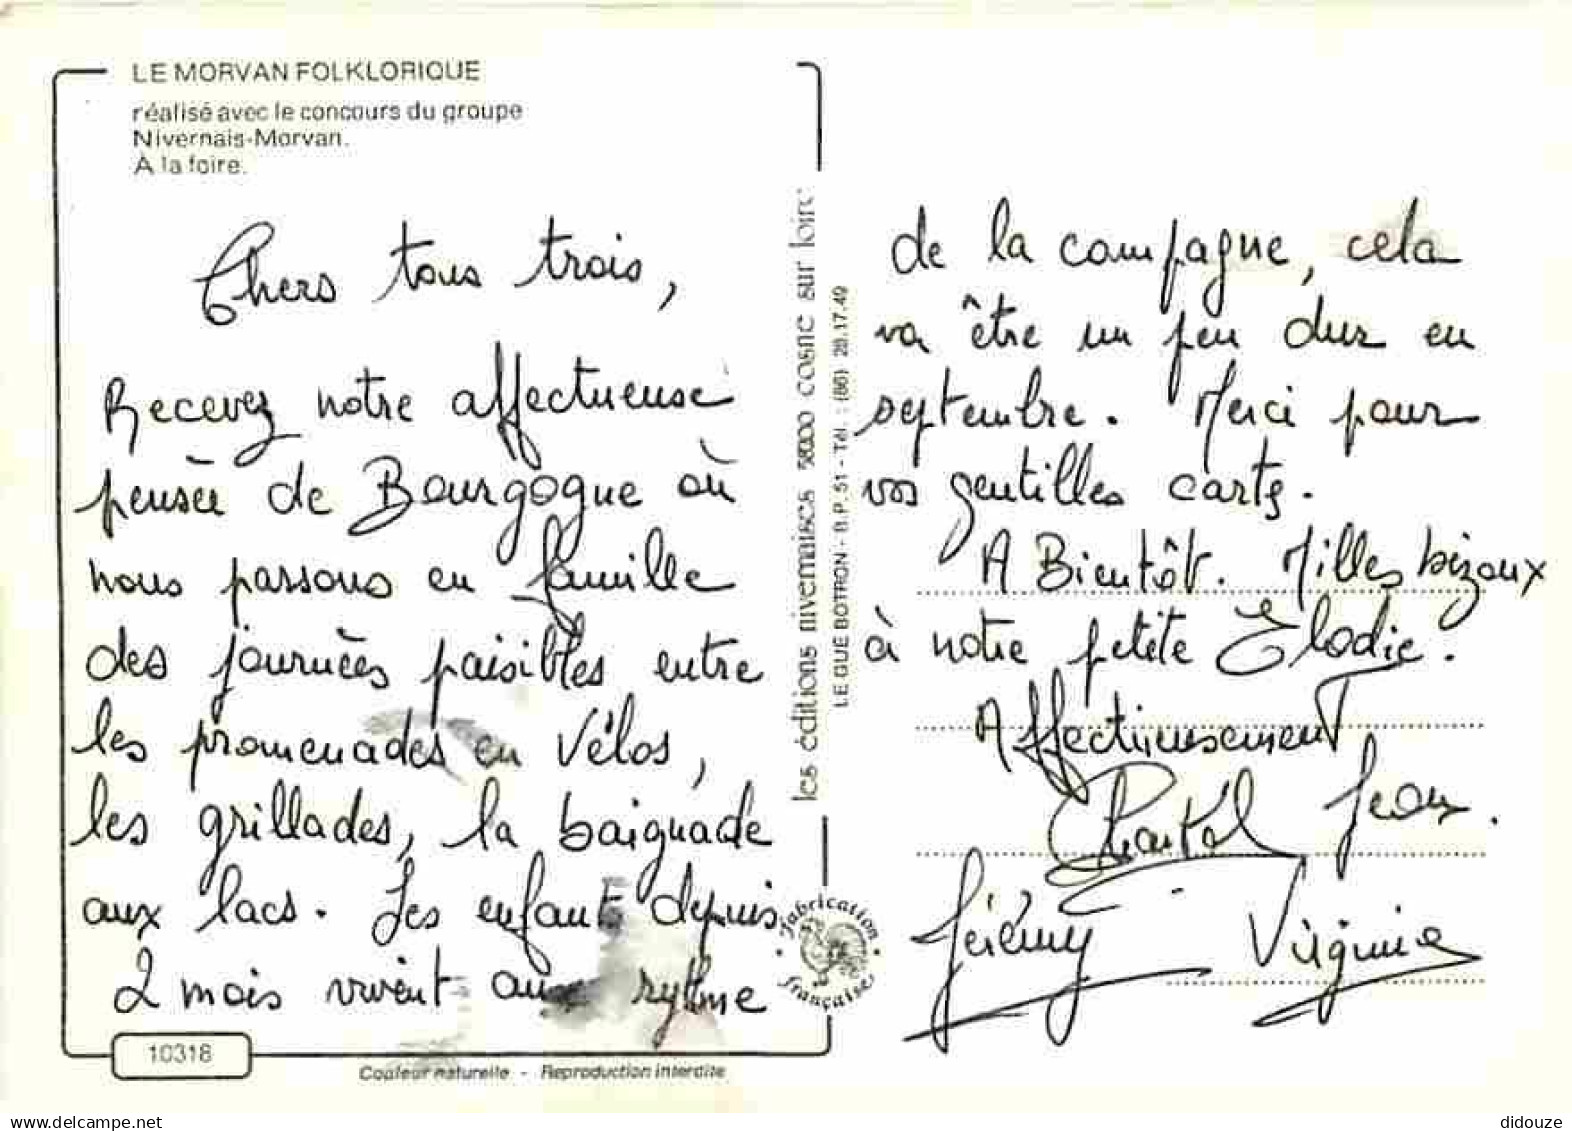 LE MORVAN FOLKLORIQUE
réalisé avec le concours du groupe
Nivernais-Morvan.
À la foire.
Chers tous trois,
Recevez notre affectueuse
pensée de Bourgogne où
nous passons en famille
des journées paisibles entre
les promenades en Vélos,
les grillades, la baignade
aux lacs. Les enfants depuis
2 mois vivent aux rytme
10318
Couleur naturelle - Reproduction interdite
les éditions nivernaises 5800 cosne sur loire
LE GUE BOTRON - B.P. 51 - Tél. : (86) 28.17.49
Fabrication
française
de la campagne, cela
va être un peu dur en
septembre. Merci pour
vos gentilles carts.
A Bientôt. Milles bizoux
à notre petite Elodie.
Affectueusement
Chantal Jean.
Jérémy Virginie
didouze